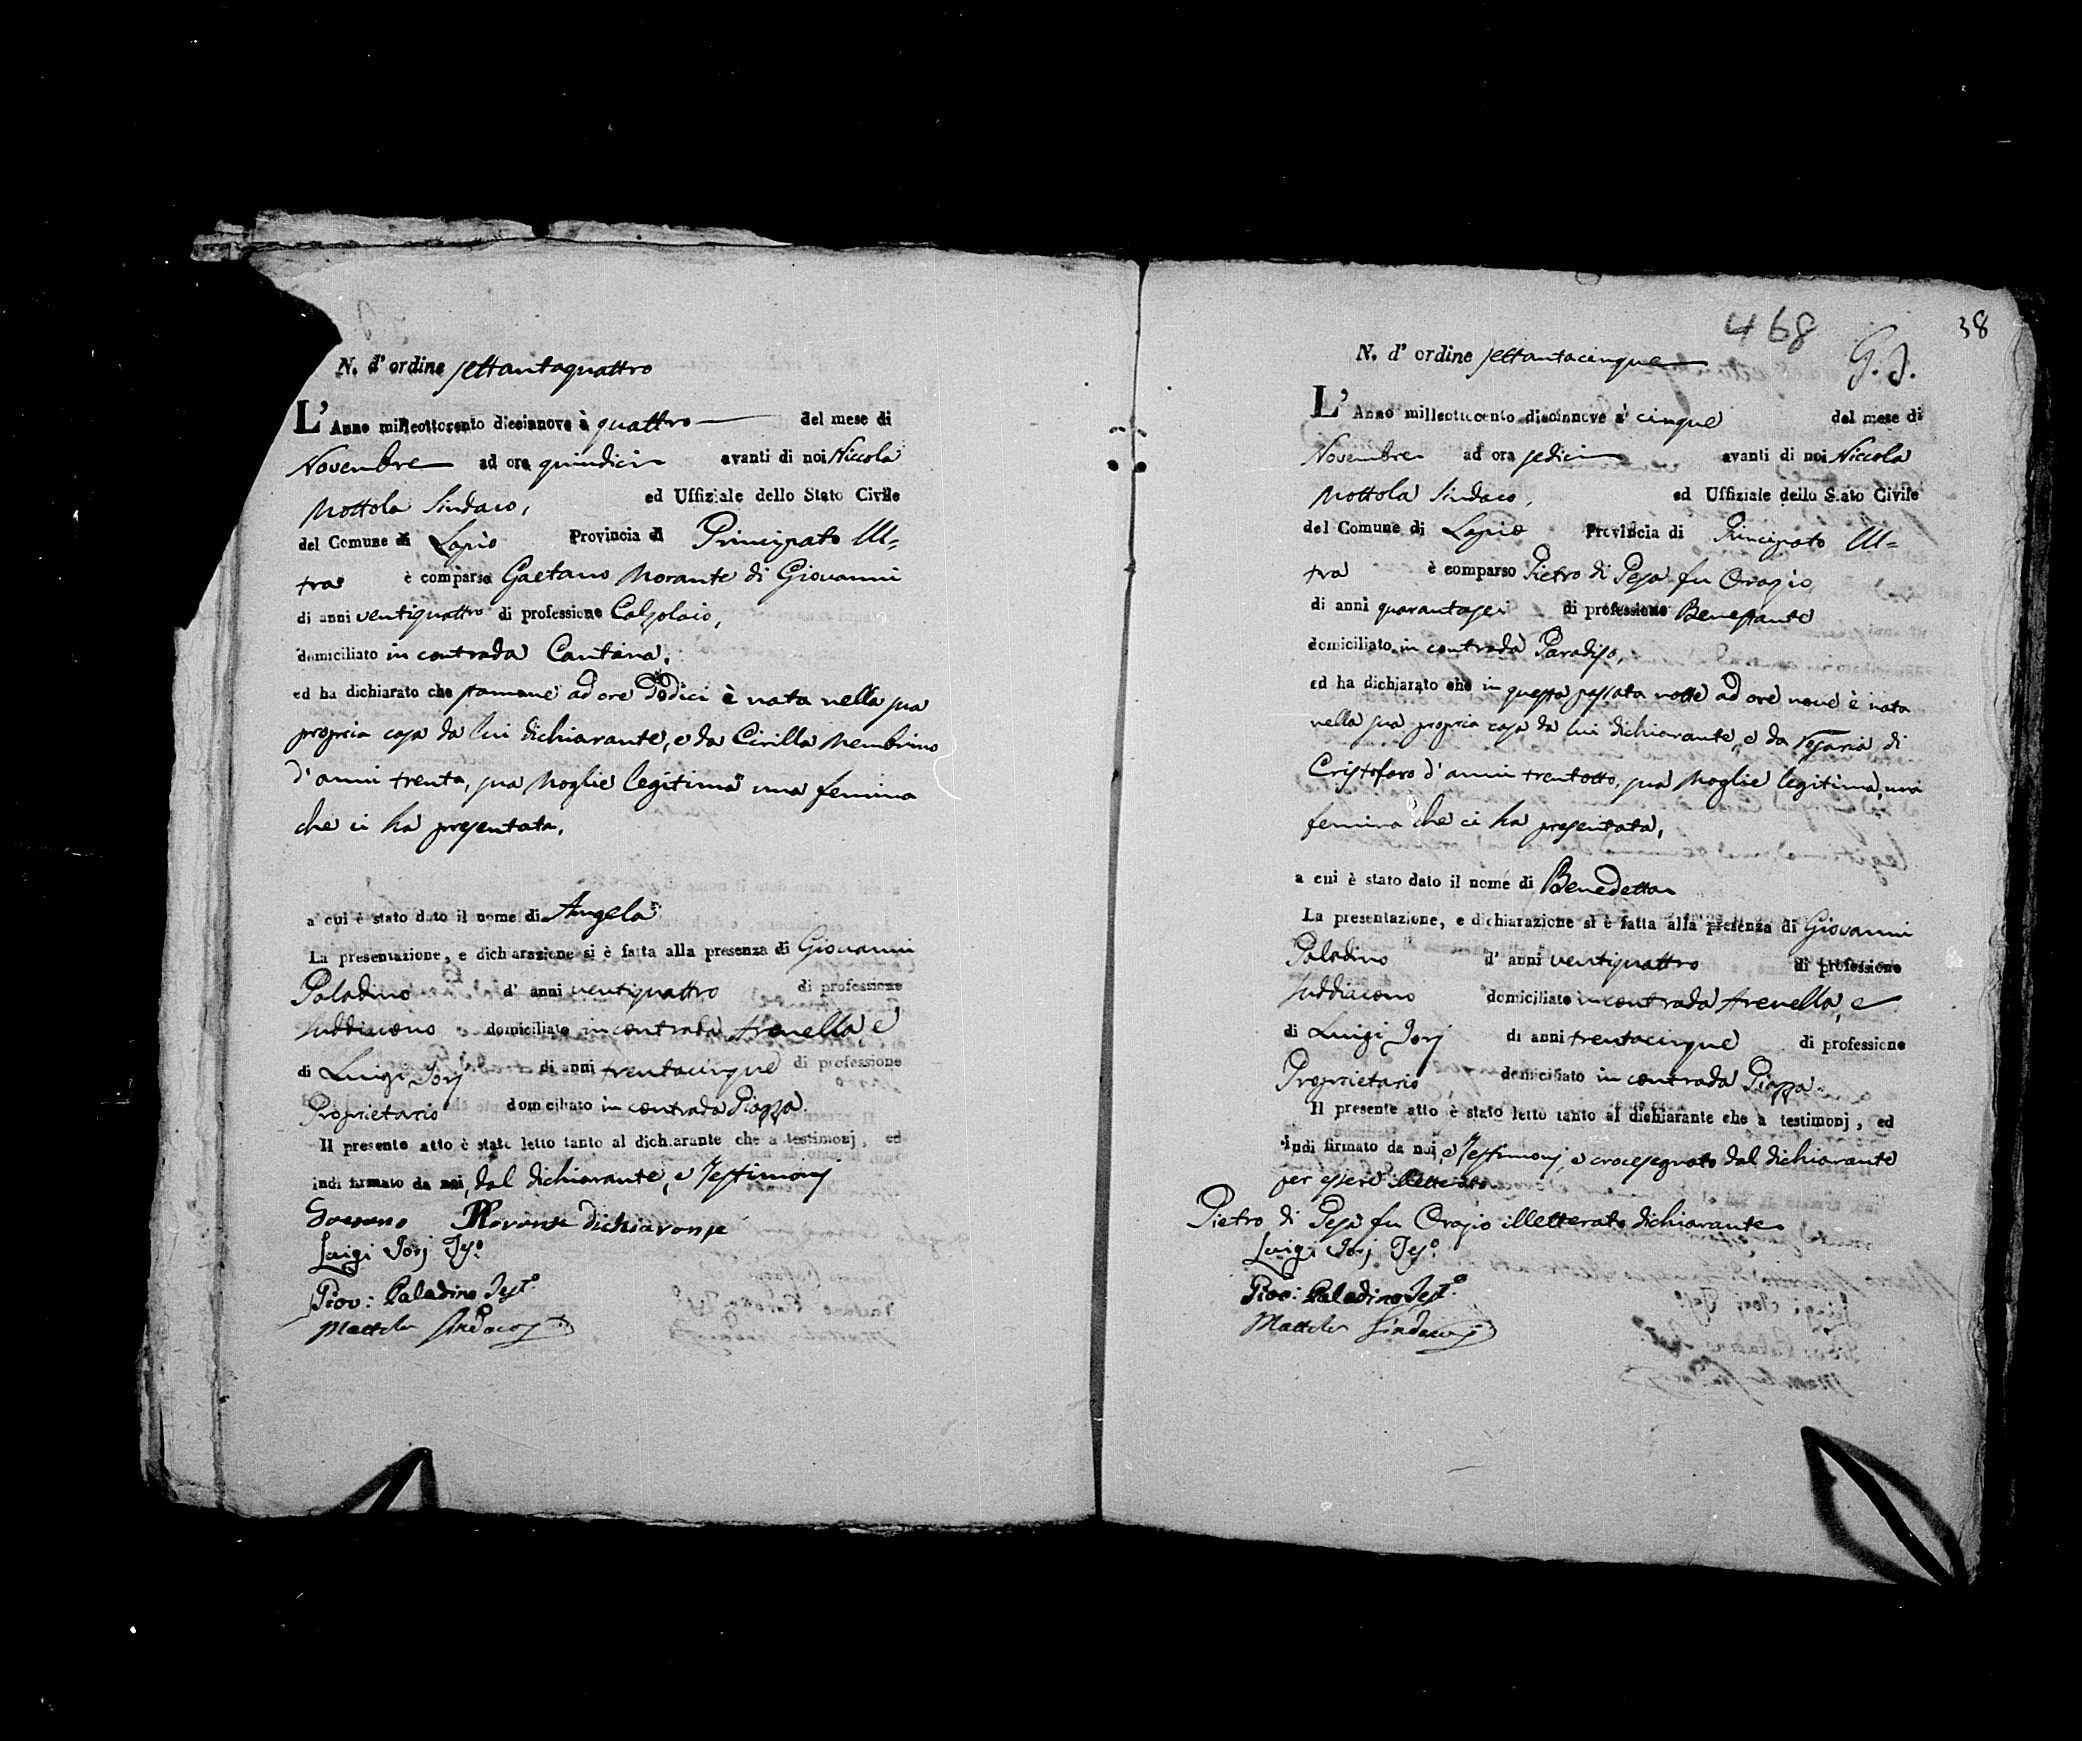 N. d' ordine settantaquattro
L' Anno milleottocento diecinnove à quattro del mese di
Novembre ad ore quindici avanti di noi Niccola
Mottola Sindaco, ed Uffiziale dello Stato Civile
del Comune di Lapio Provincia di Principato Ul=
tra è comparso Gaetano Morante di Giovanni
di anni ventiquattro di professione Calzolaio,
domiciliato in contrada Cantina,
ed ha dichiarato che stamane ad ore dodici è nata nella sua
propria casa da lui dichiarante, e da Cirilla Membrino
d'anni trenta, sua Moglie legitima una femina
che ci ha presentata,
a cui è stato dato il nome di Angela
La presentazione, e dichiarazione si è fatta alla presenza di Giovanni
Paladino d' anni ventiquattro di professione
Suddiacono domiciliato in contrada Arenella, e
di Luigi Jorj di anni trentacinque di professione
Proprietario domiciliato in contrada Piazza.
Il presente atto è stato letto tanto al dichiarante che a testimonj, ed
indi firmato da noi, dal dichiarante, e Testimonj
Gaetano Morante dichiarante
Luigi Jorj Tes.º
Giov: Paladino Test.º
Mottola Sindaco
468
38
G. J.
N. d' ordine settantacinque
L' Anno milleottocento diecinnove a' cinque del mese di
Novembre ad ora sedici avanti di noi Niccola
Mottola Sindaco, ed Uffiziale dello Stato Civile
del Comune di Lapio Provincia di Principato Ul=
tra è comparso Pietro di Pesa fu Orazio
di anni quarantasei di professione Benestante
domiciliato in contrada Paradiso,
ed ha dichiarato che in questa passata notte ad ore nove è nata
nella sua propria casa da lui dichiarante, e da Rosaria di
Cristofaro d'anni trentotto, sua Moglie legitima, una
femina che ci ha presentata,
a cui è stato dato il nome di Benedetta
La presentazione, e dichiarazione si è fatta alla presenza di Giovanni
Paladino d' anni ventiquattro di professione
Suddiacono domiciliato in contrada Arenella, e
di Luigi Jorj di anni trentacinque di professione
Proprietario domiciliato in contrada Piazza.
Il presente atto è stato letto tanto al dichiarante che a testimonj, ed
indi firmato da noi, e Testimonj, e crocesegnato dal dichiarante
per essere illetterato
Pietro di Pesa fu Orazio illetterato dichiarante
Luigi Jorj Tes.º
Giov: Paladino Test.º
Mottola Sindaco